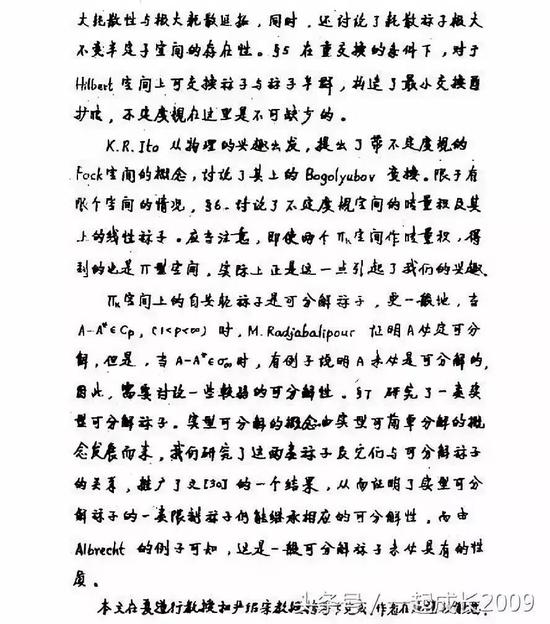 大耗散性与极大耗散延拓,同时,还讨论了耗散祘子极大
不变半定子空间的存在性。§5 在重交换的条件下,对于
Hilbert 空间上可交换祘子与祘子半群,构造了最小交换酉
扩张,不定度规在这里是不可缺少的。
K.R.Ito 从物理的兴趣出发,提出了带不定度规的
Fock空间的概念,讨论了其上的 Bogolyubov 变换。限于有
限个空间的情况,§6.讨论了不定度规空间的张量积及其
上的线性祘子。应当注意,即使两个 πκ空间作张量积,得
到的也是 π型空间,实际上正是这一点引起了我们的兴趣.
πκ空间上的自共轭祘子是可分解祘子,更一般地,当
A-A*∈Cp,(1<p<∞) 时,M.Radjabalipour 证明A必定可分
解,但是,当 A-A*∈σ∞时,有例子说明 A 未必是可分解的,
因此,需要讨论一些较弱的可分解性。§7 研究了一类实
型可分解祘子。实型可分解的概念由实型可简单分解的概
念发展而来,我们研究了这两类祘子及它们与可分解祘子
的关系,推广了文[30]的一个结果,从而证明了实型可分
解祘子的一类限制祘子仍能继承相应的可分解性。而由
Albrecht 的例子可知,这是一般可分解祘子未必具有的性
质。
本文在夏道行教授和严绍宗教授指导下完成,作者在
头条号/一起成长2009